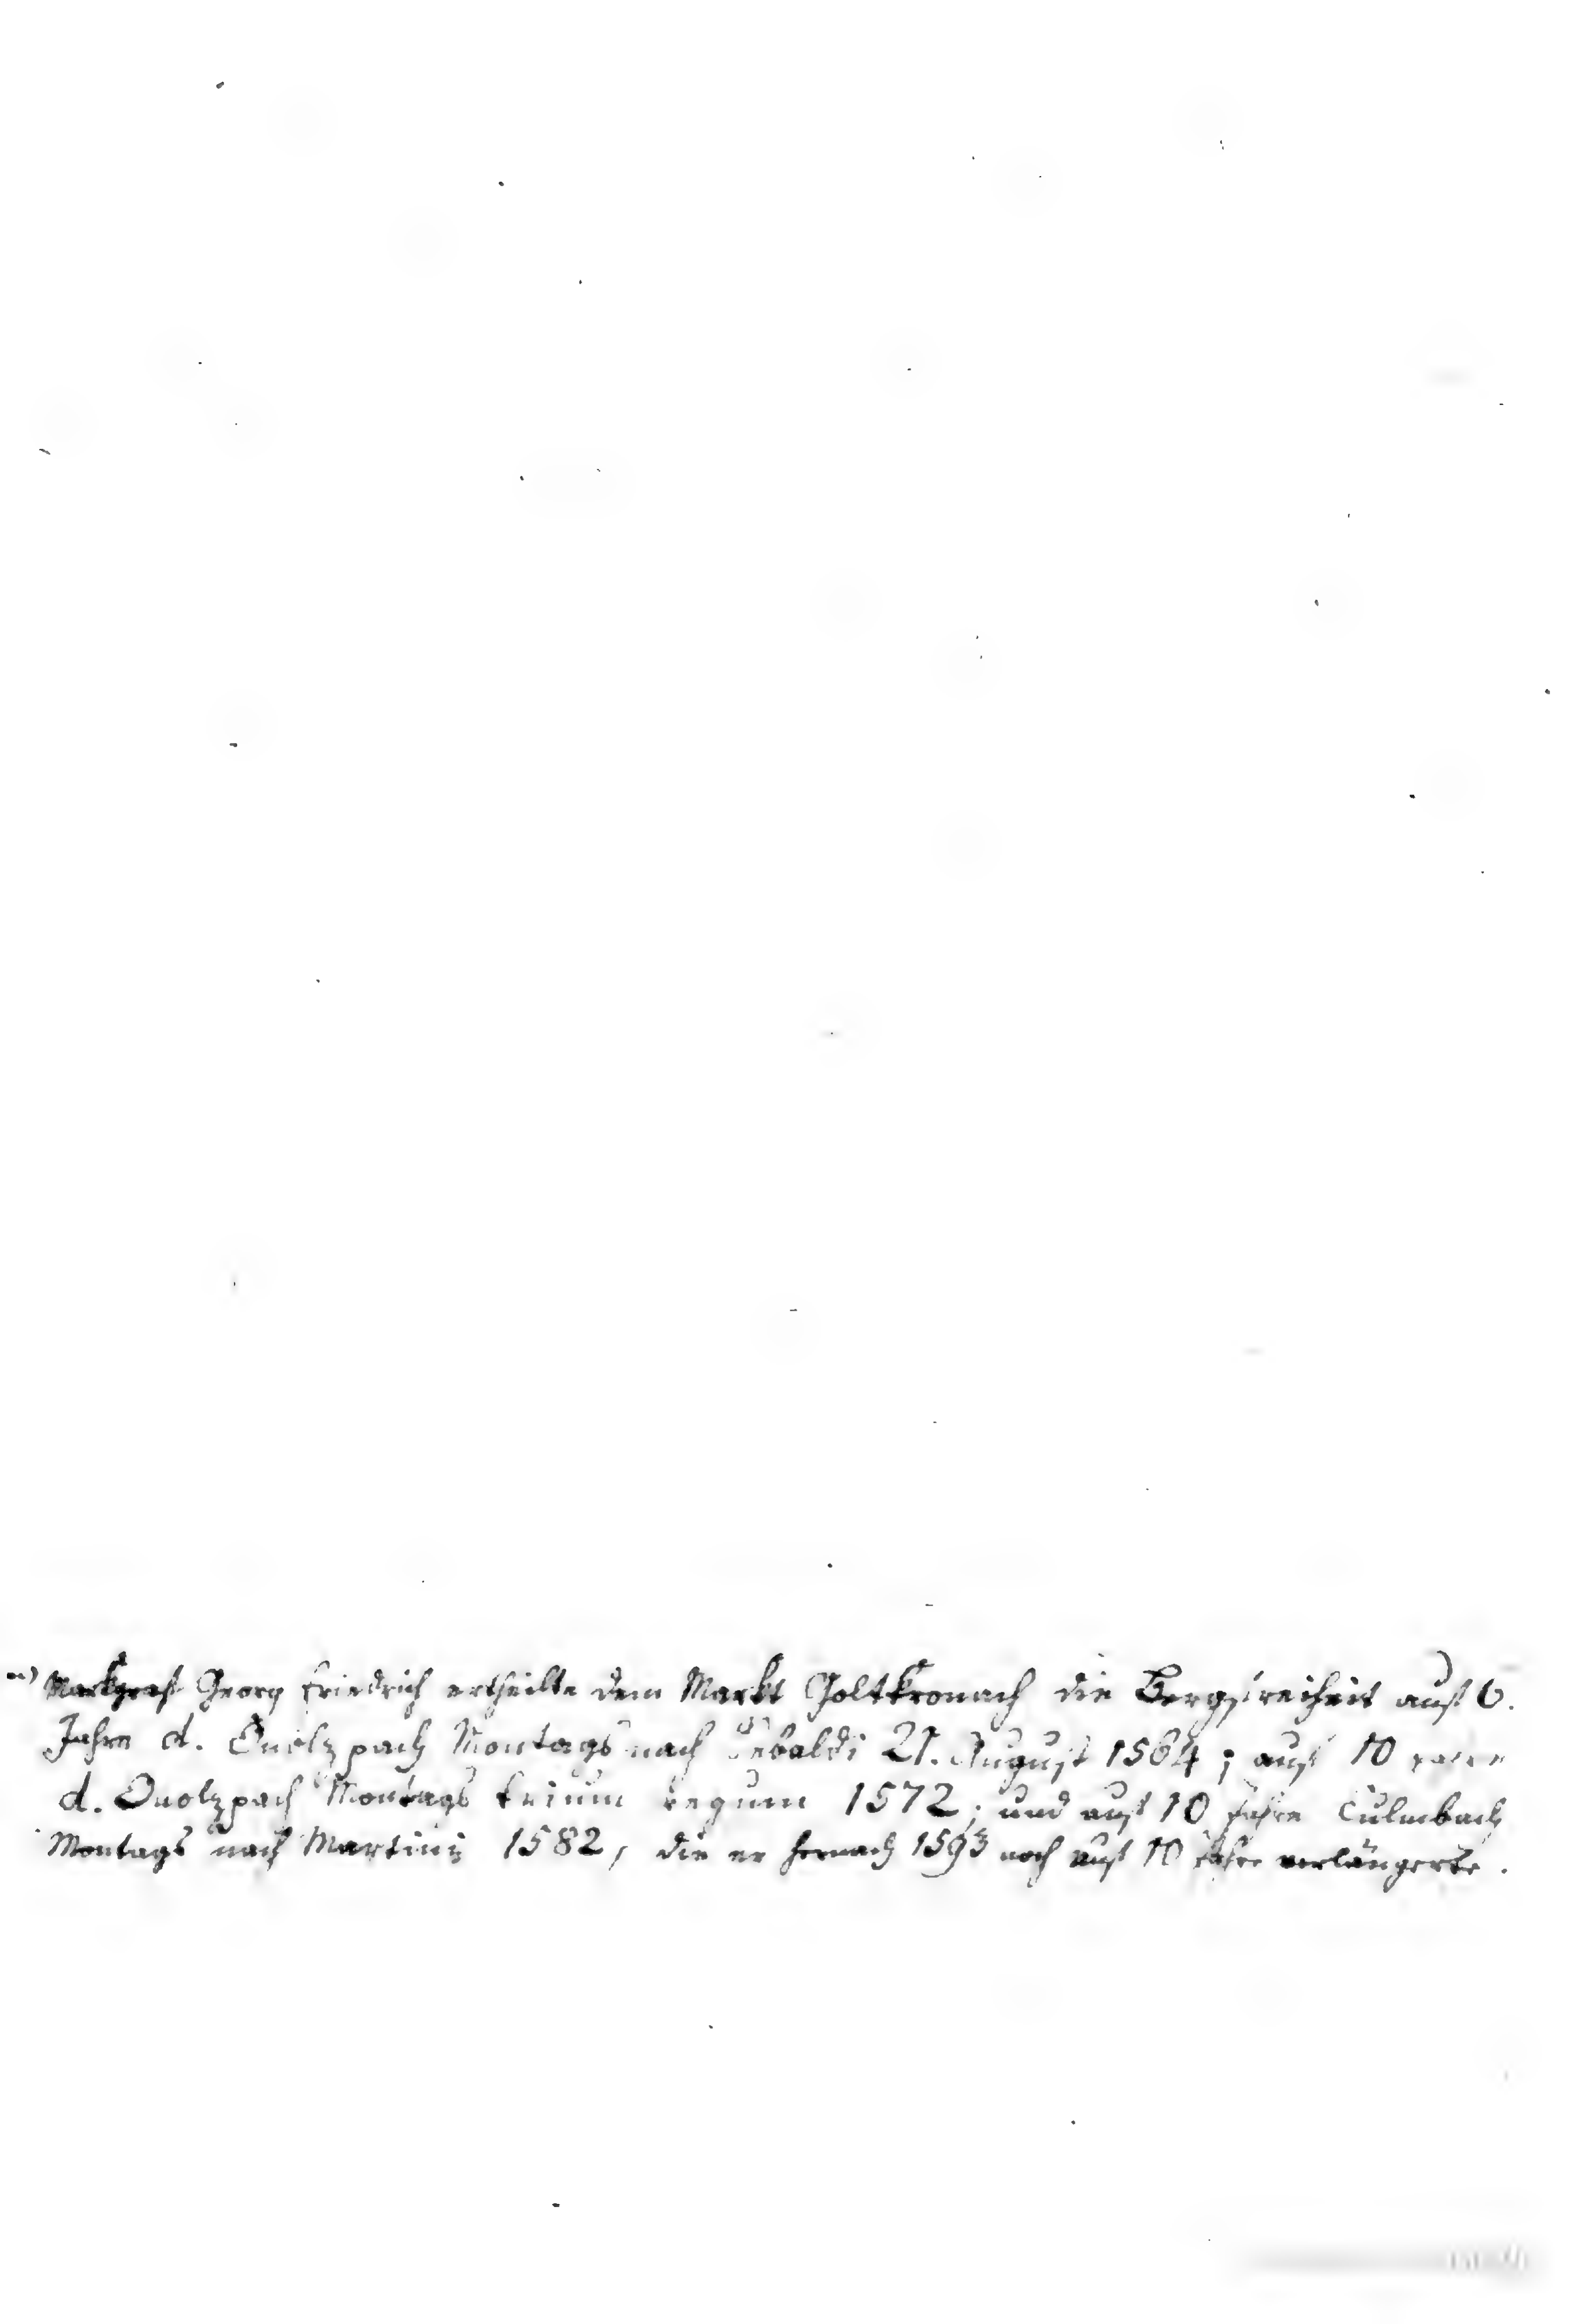 Markgraf Georg Friedrich ertheilte dem Markt Goltkronach die Bergfreiheit auf 6.
Jahre d. Onolzpach Montags nach Sebaldi 21. August 1564; auf 10 Jahre
d. Onolzpach Montags trium regum 1572; und auf 10 Jahre Culmbach
Montags nach Martini 1582, die er hernach 1593 noch auf 10 Jahre verlängerte.